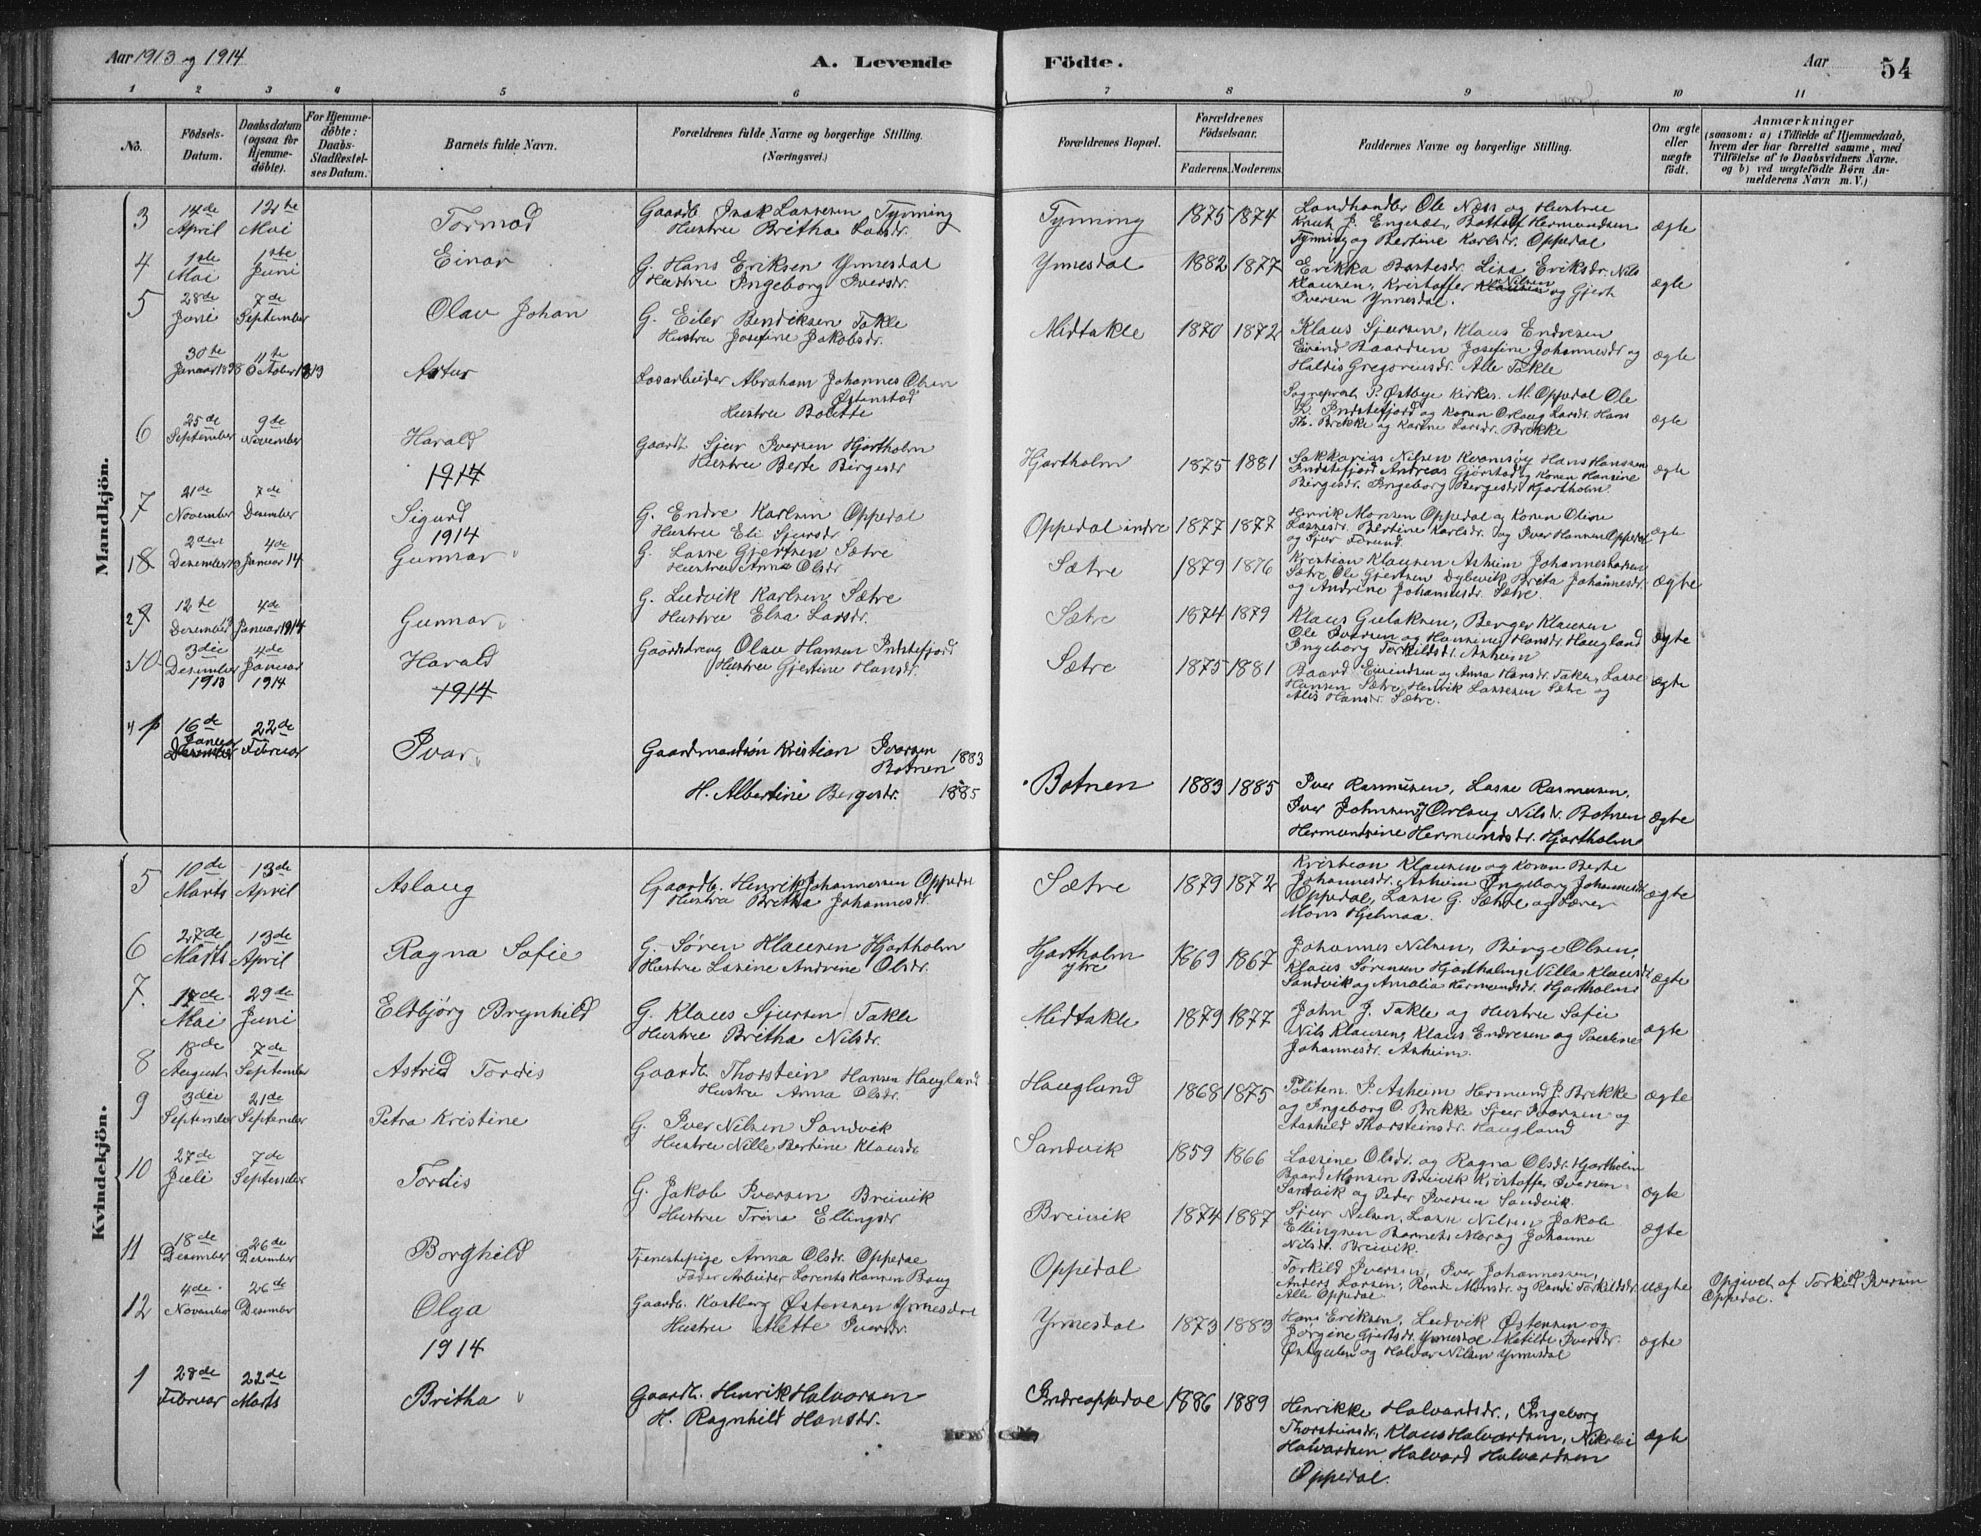 Aar 1913 og 1914
A. Levende
Födte.
Aar
54
1 2 3 4 5 6 7 8 9 10 11
No.
Födsels-Datum.
Daabsdatum (ogsaa for Hjemmedöbte).
For Hjemmedöbte: Daabs-Stadfæstelses Datum.
Barnets fulde Navn.
Forældrenes fulde Navne og borgerlige Stilling.
(Næringsvei.)
Forældrenes Bopæl.
Forældrenes Födselsaar.
Faderens. Moderens.
Faddernes Navne og borgerlige Stilling.
Om ægte eller uægte födt.
Anmærkninger
(saasom: a) i Tilfælde af Hjemmedaab, hvem der har forrettet samme, med Tilföielse af to Daabsvidners Navne. og b) ved uægtefödte Børn Anmelderens Navn m. V.)
Mandkjön.
3 14de April 12te Mai Tormod Gaardb. Isak Lassesen Tynning
Hustru Britha Larsdr. Tynning 1875 1874 Landhandler Ole Næss og Hustru
Knut J. Engesæt, Bottolf Hermundsen
Tynning og Bertine Karlsdr. Oppedal ægte
4 1ste Mai 1ste Juni Einar G. Hans Eriksen Ynnesdal
Hustru Ingeborg Iversdr. Ynnesdal 1882 1877 Erikka Baltesdr. Lisa Eriksdr. Nils
Klausen, Kristoffer Nilsen og Gjert
Iversen Ynnesdal. ægte
5 28de Juni 7de September Olav Johan G. Eiler Bendiksen Takle
Hustru Josefine Jakobsdr. Midtakle 1870 1872 Klaus Sjursen, Klaus Endresen
Eivind Baardsen Josefine Johannesdr og
Haldis Gregoriusdr. Alle Takle ægte
30te Januar 1898 11te October 1913 Artur Løsarbeider Abraham Johannes Olsen
Østenstad
Hustru Bolette Sogneprest P. Østbye Kirkes. M. Oppedal Ole
L. Indstefjord og Konen Orlaug Larsdr. Hans
Th. Brekke og Karine Larsdr. Brekke ægte
6 25de September 9de November Harald Gaardb. Sjur Iversen Hjartholm
Hustru Berte Birgesdr Hjartholm 1875 1881 Sakkarias Nilsen Kvamsøy Hans Hanssen
Indstefjord Andreas Gjørstad og Konen Hansine
Bergesdr. Ingeborg Bergesdr Hjartholm ægte
1914
7 21de November 7de Desember Sigurd G. Endre Karlsen Oppedal
Hustru Eli Sjursdr. Oppedal indre 1877 1877 Henrik Monsen Oppedal og Konen Oline
Lassesdr. Bertine Karlsdr. og Iver Hansen Oppedal
og Sjur ægte
1914
1 8 2den Desember 4de Januar 14 Gunnar G. Lasse Gjertsen Sætre
Hustru Anna Olsdr Sætre 1879 1876 Kristian Klausen Asheim Johannes Larsen
Sætre Ole Gjertsen Dybevik Brita Johannesdr.
og Andrine Johannesdr. Sætre. ægte
2 9 12te Desember 4de Januar 1914 Gunnar G. Ludvik Karlsen Sætre
Hustru Elsa Larsdr. Sætre 1874 1879 Klaus Gulaksen, Berger Klausen
Ole Iversen og Hansine Hansdr. Haugland
Ingeborg Torkildsdr. Asheim ægte
3 10 3die Desember 1913 4de Januar 1914 Harald Gaardsdreng Olav Hansen Indstefjord
Hustru Gjertine Hansdr. Sætre 1875 1881 Baard Eivindsen og Anna Hansdr. Takle, Lasse
Hansen Sætre, Henrik Lassesen Sætre og
Alis Hansdr. Sætre. ægte
1914
4 1 16de Januar 22de Februar Ivar Gaardmandsøn Kristian Ivarsen
Botnen 1883
H. Albertine Bergesdr. 1885 Botnen 1883 1885 Iver Rasmusen, Lasse Rasmusen,
Iver Johnsen, Orlaug Nilsdr. Botnen
Hermundsine Hermundsdr. Hjartholm ægte
Kvindekjön.
5 10de Marts 13de April Aslaug Gaardb. Henrik Johannessen Oppedal
Hustru Britha Johannesdr. Sætre 1879 1872 Kristian Klausen og Konen Berte
Johannesdr. Asheim Ingeborg Johannesdr
Oppedal, Lasse G. Sætre og Lærer
Mons Hjelmaa. ægte
6 27de Marts 13de April Ragna Sofie G. Søren Klausen Hjartholm
Hustru Lasine Andrine Olsdr. Hjartholm ytre 1869 1867 Johannes Nilsen, Birge Olsen,
Klaus Sørensen Hjartholm, Nilla Klausdr
Sandvik og Amalia Hermundsdr. Hjartholm ægte
7. 17de Mai 29de Juni Eldbjørg Brynhild G. Klaus Sjursen Takle
Hustru Britha Nilsdr. Midtakle 1879 1877 John J. Takle og Hustru Sofie
Nils Klausen, Klaus Endresen og Pauline
Johannesdr. Asheim. ægte
8 18de August 7de September Astrid Tordis Gaardb. Thorstein Hansen Haugland
Hustru Anna Olsdr. Haugland 1868 1875 Politem. I. Asheim Hermund J. Brekke
og Ingeborg O. Brekke Sjur Ivarsen og
Aashild Thorsteinsdr. Haugland ægte
9 3die September 21de September Petra Kristine G. Iver Nilsen Sandvik
Hustru Nille Bertine Klausdr Sandvik 1859 1866 Lassine Olsdr. og Ragna Olsdr. Hjartholm
Baard Monsen Breivik Kristoffer Iversen
Sandvik og Peder Iversen Sandvik ægte
10 27de Juli 7de September Tordis G. Jakob Iversen Breivik
Hustru Trina Ellingsdr Breivik 1874 1887 Sjur Nilsen, Lasse Nilsen Jakob
Ellingsen Barnets Mor og Johanne
Nilsdr. Breivik. ægte
11 18de Desember 26de Desember Borghild Tjenestepige Anna Olsdr. Oppedal
Fader Arbeider Lorents Hansen Boug Oppedal Torkild Iversen, Iver Johannessen,
Anders Larsen, Randi Monsdr og Randi Torkildsdr.
Alle Oppedal uægte Opgivet af Torkild Iversen
Oppedal.
12 4de November 26de Desember Olga Gaardb. Kastberg Østensen Ynnesdal
Hustru Alette Iversdr. Ynnesdal 1873 1883 Hans Eriksen, Ludvik Østensen og
Jørgine Gjertsdr. Ynnesdal Matilde Iversdr.
Østgulen og Halvar Nilsen Ynnesdal ægte
1914
1 28de Februar 22de Marts Britha Gaardb. Henrik Halvorsen
H. Ragnhild Hansdr. Indreoppedal 1886 1889 Henrikke Halvardsdr., Ingeborg
Thorsteinsdr., Klaus Halvardsen, Nikolai
Halvardsen Halvard Halvardsen
Oppedal. ægte